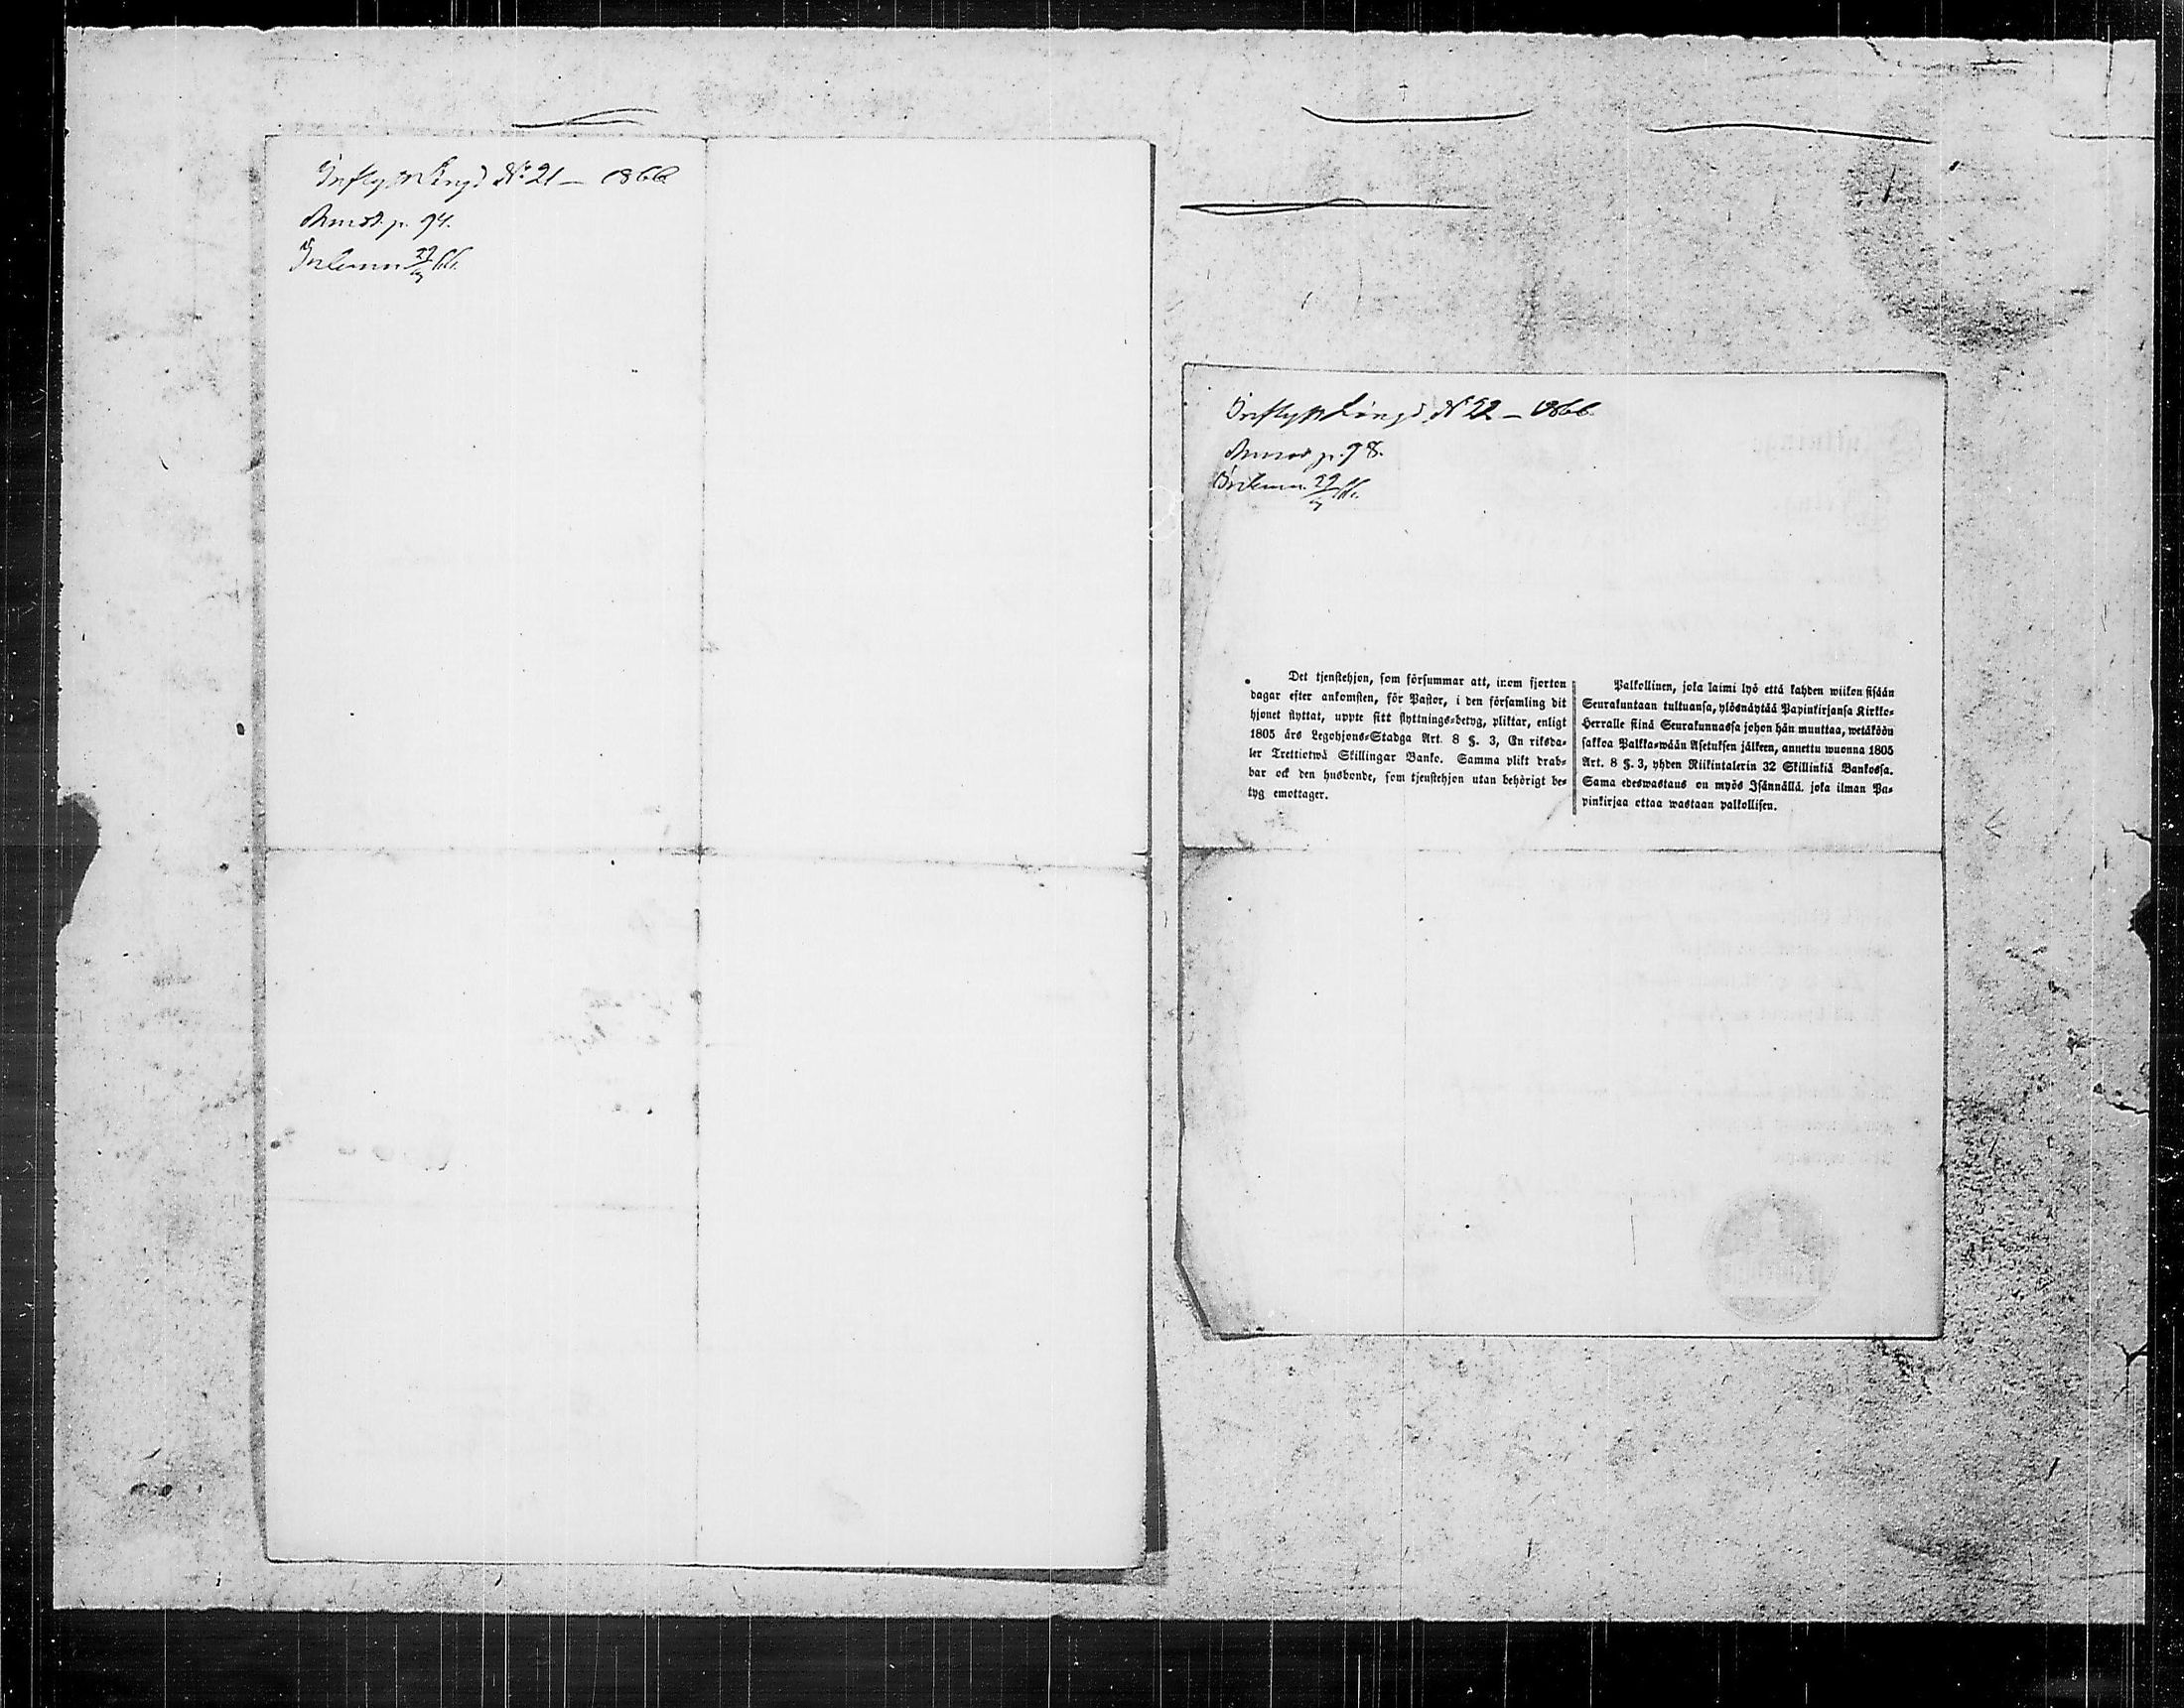 Inflytt Längd No 21 — 1866
p. 94.
Inlemn 29/ 66.
Inflytt Längd No 22 — 1866.
p. 98.
Inlemn. 29/ 66.
Det tjenstehjon, som försummar att, inom fjorton
dagar efter ankomsten, för Pastor, i den församling dit
hjonet flyttat, uppte sitt flyttnings-betyg, pliktar, enligt
1805 års Legohjons-Stadga Art. 8 §. 3, En riksda-
ler Trettiotwå Skillingar Banko. Samma plikt drab-
bar ock den husbonde, som tjenstehjon utan behörigt be-
tyg emottager.
Palkollinen, joka laimi lyö että kahden wiikon sisään
Seurakuntaan tultuansa, ylösnäytää Papinkirjansa Kirkko-
Herralle siinä Seurakunnassa johon hän muuttaa, wetäköön
sakkoa Palkka-wään Asetuksen jälkeen, annettu wuonna 1805
Art. 8 §. 3, yhden Riikintalerin 32 Skillinkiä Bankossa.
Sama edeswastaus on myös Isännällä. joka ilman Pa-
pinkirjaa ottaa wastaan palkollisen.